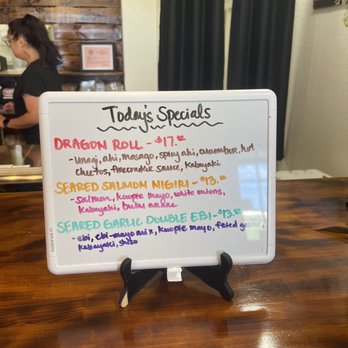 Today's Specials
DRAGON ROLL - $17.00
- Unagi, ahi, masago, spicy ahi, cucumber, hot
cheetos, firecracker sauce, kabayaki
SEARED SALMON NIGIRI - $13.00
- salmon, kewpie mayo, white onions,
kabayaki, bubu arare
SEARED GARLIC DOUBLE EBI - $13.00
- ebi, ebi-mayo mix, kewpie mayo, fried garlic,
kabayaki, shiso